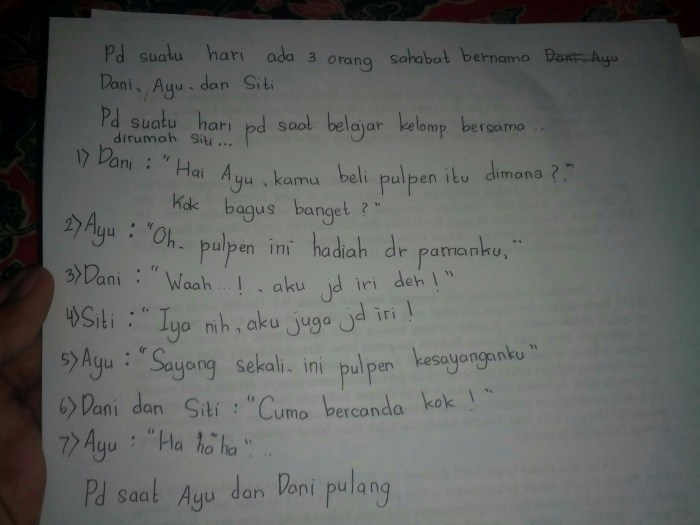 Pd suatu hari ada 3 orang sahabat bernama Dani. Ayu
Dani, Ayu. dan Siti
Pd suatu hari pd saat belajar kelomp bersama ..
dirumah Siti...
1) Dani : "Hai Ayu, kamu beli pulpen itu dimana ?."
Kok bagus banget ?"
2) Ayu : "Oh. pulpen ini hadiah dr pamanku,"
3) Dani : "Waah ...! . aku jd iri deh ! "
4) Siti : " Iya nih, aku juga jd iri !
5) Ayu : "Sayang sekali. ini pulpen kesayanganku"
6) Dani dan Siti : "Cuma bercanda kok ! "
7) Ayu : "Ha ha ha " ..
Pd saat Ayu dan Dani pulang